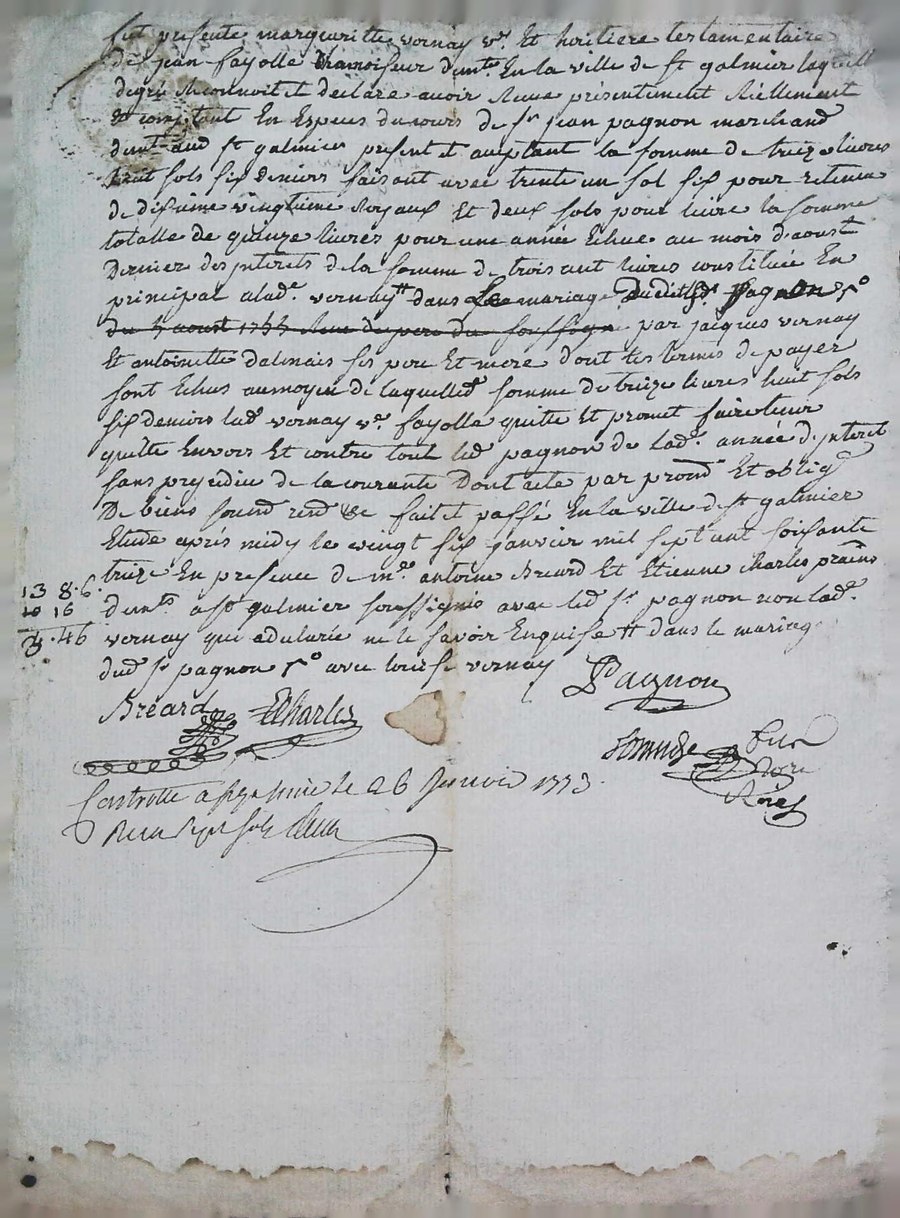 fut presente margueritte vornay vve. Et heritiere testamentaire
de jean fayolle chamoiseur demt. En la ville de st galmier laquelle
degré Reconnoit et declare avoir Reçue presentement Réellement
Et comptant En Especes du cours de sr jean pagnon marchand
demt. aud st galmier present et aceptant la somme de treize livres
huit sols six deniers faisant avec trente un sol six pour retenue
de dixieme vingtieme Royaux Et deux sols pour livre la somme
totalle de quinze livres pour une année Echue au mois d'aoust
Dernier des jnterets de la somme de trois cent livres constituée En
principal a lad. vornay dans Le mariage Dudit sr. Pagnon
du aoust par jacques vornay
Et antoinette dalmais ses pere Et mere dont les termes de payer
sont Echus au moyen de laquelle d. somme de treize livres huit sols
six deniers lad. vornay vve. fayolle quitte Et promet faire tenir
quitte Envers Et contre tout led pagnon de lad. année d'jnteret
sans prejudice de la courante Dont acte par prom Et oblig
De biens soum renon &c fait et passé En la ville de st galmier
Etude aprés midy le vingt six janvier mil sept cent soixante
treize En presence de me. antoine Breard Et Etienne Charles pratns
demts a st galmier soussignés avec led sr pagnon non lad.
13 8.6.
10 16
3.46
vornay qui a declaré ne le savoir Enquise tt dans le mariage
dud sr pagnon avec vornay
Breard ECharles Pagnon
Controllé a st galmier le 26 Janvier 1773.
Recu sept sols